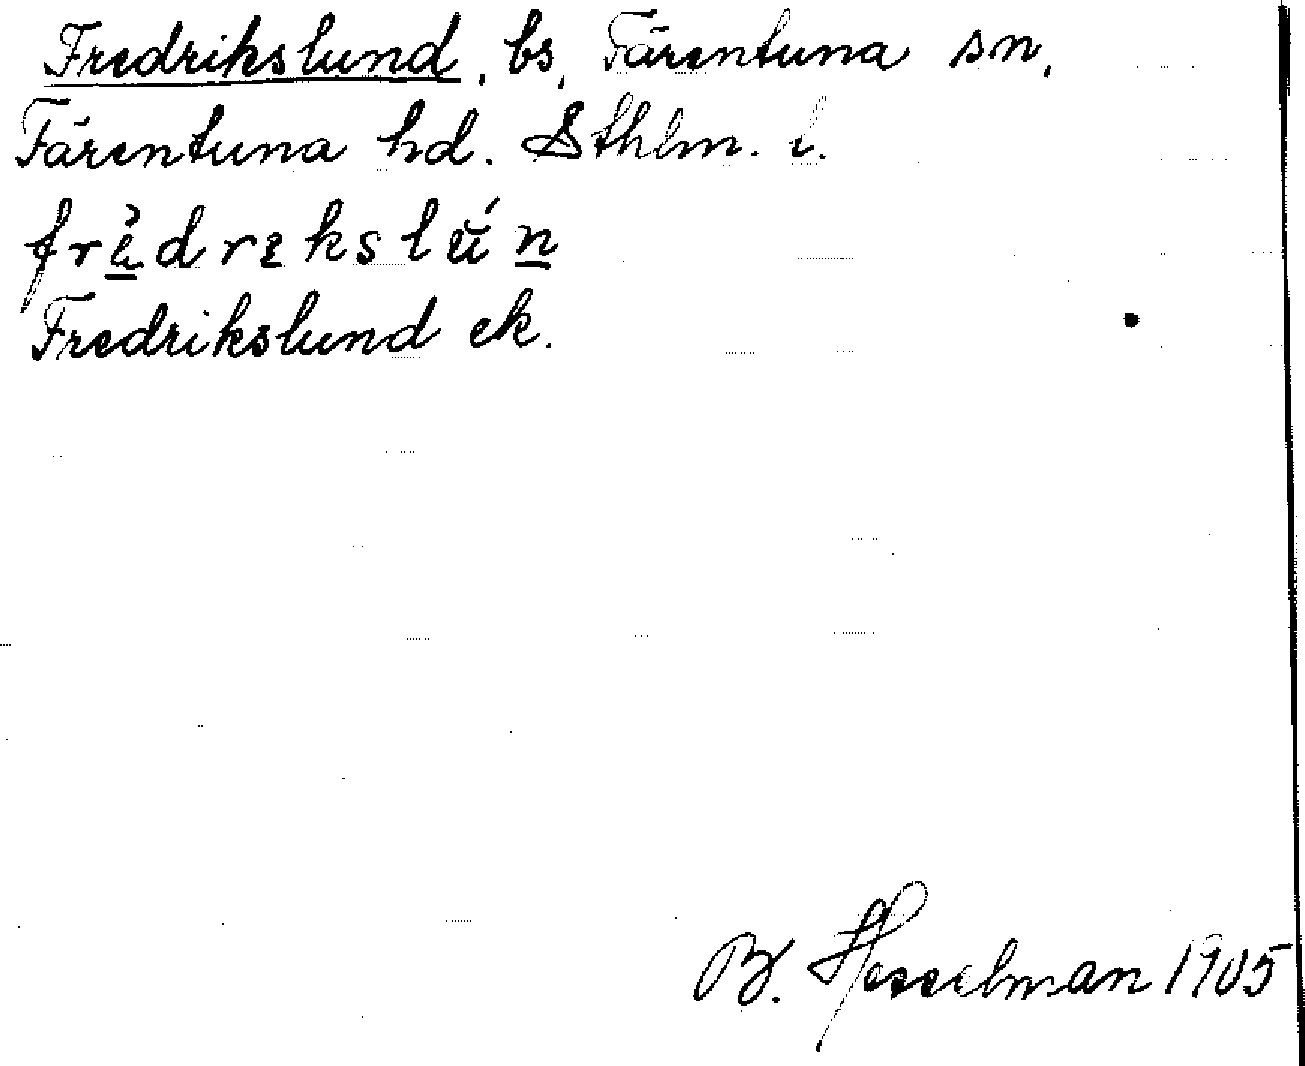 Fredrikslund, bs, Färentuna sn,
Färentuna hd. Sthlm. l.
frèdrekslún
Fredrikslund ek.
B. Hesselman 1905